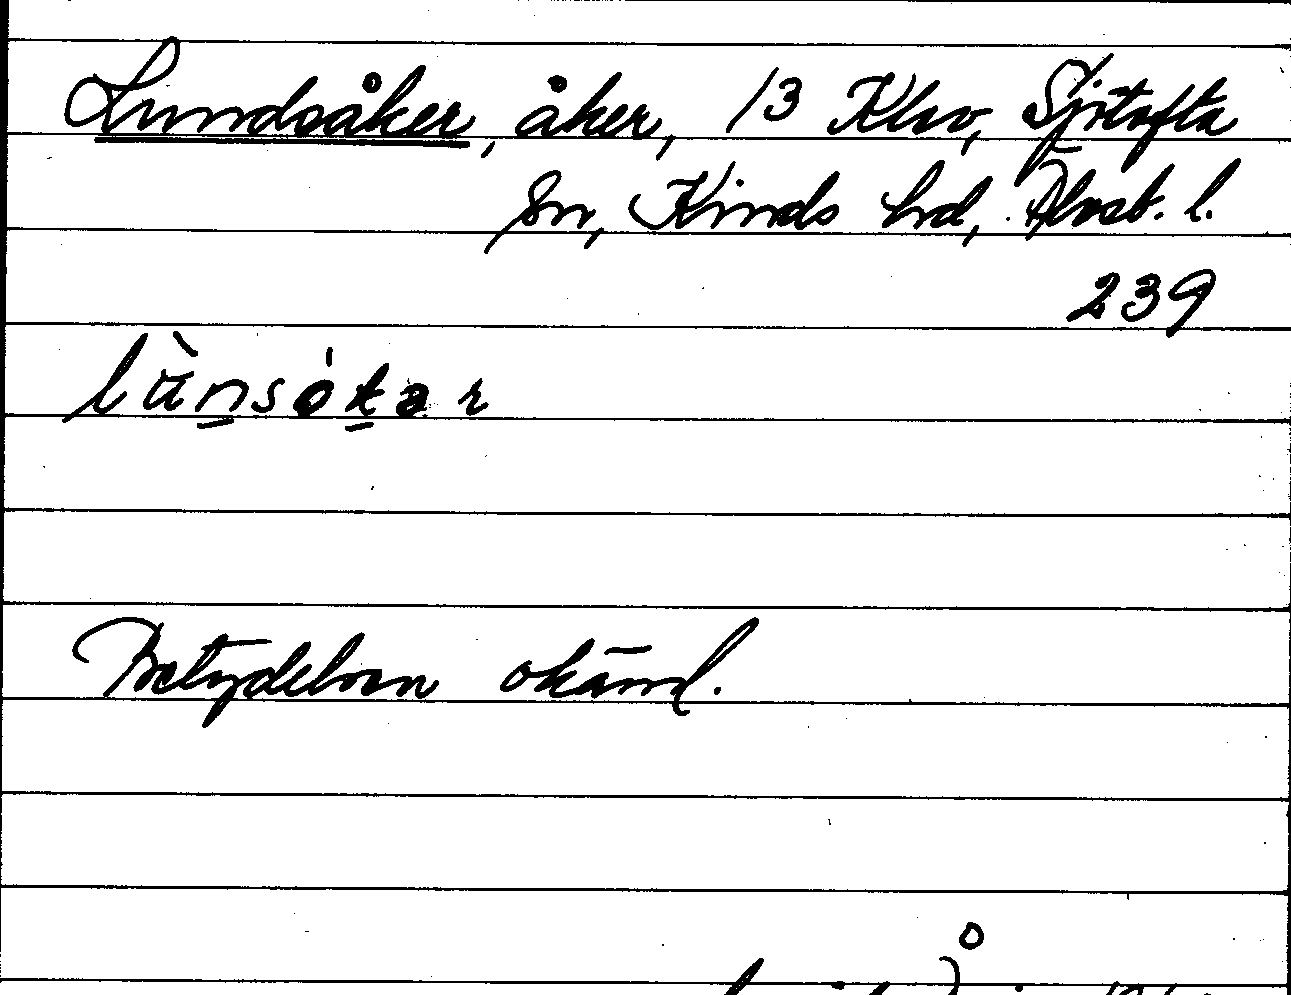 Lundsåker, åker, 13 Klev, Sjötofta
sn, Kinds hd, Älvsb. l.
239
lùnsótar
Betydelsen okänd.